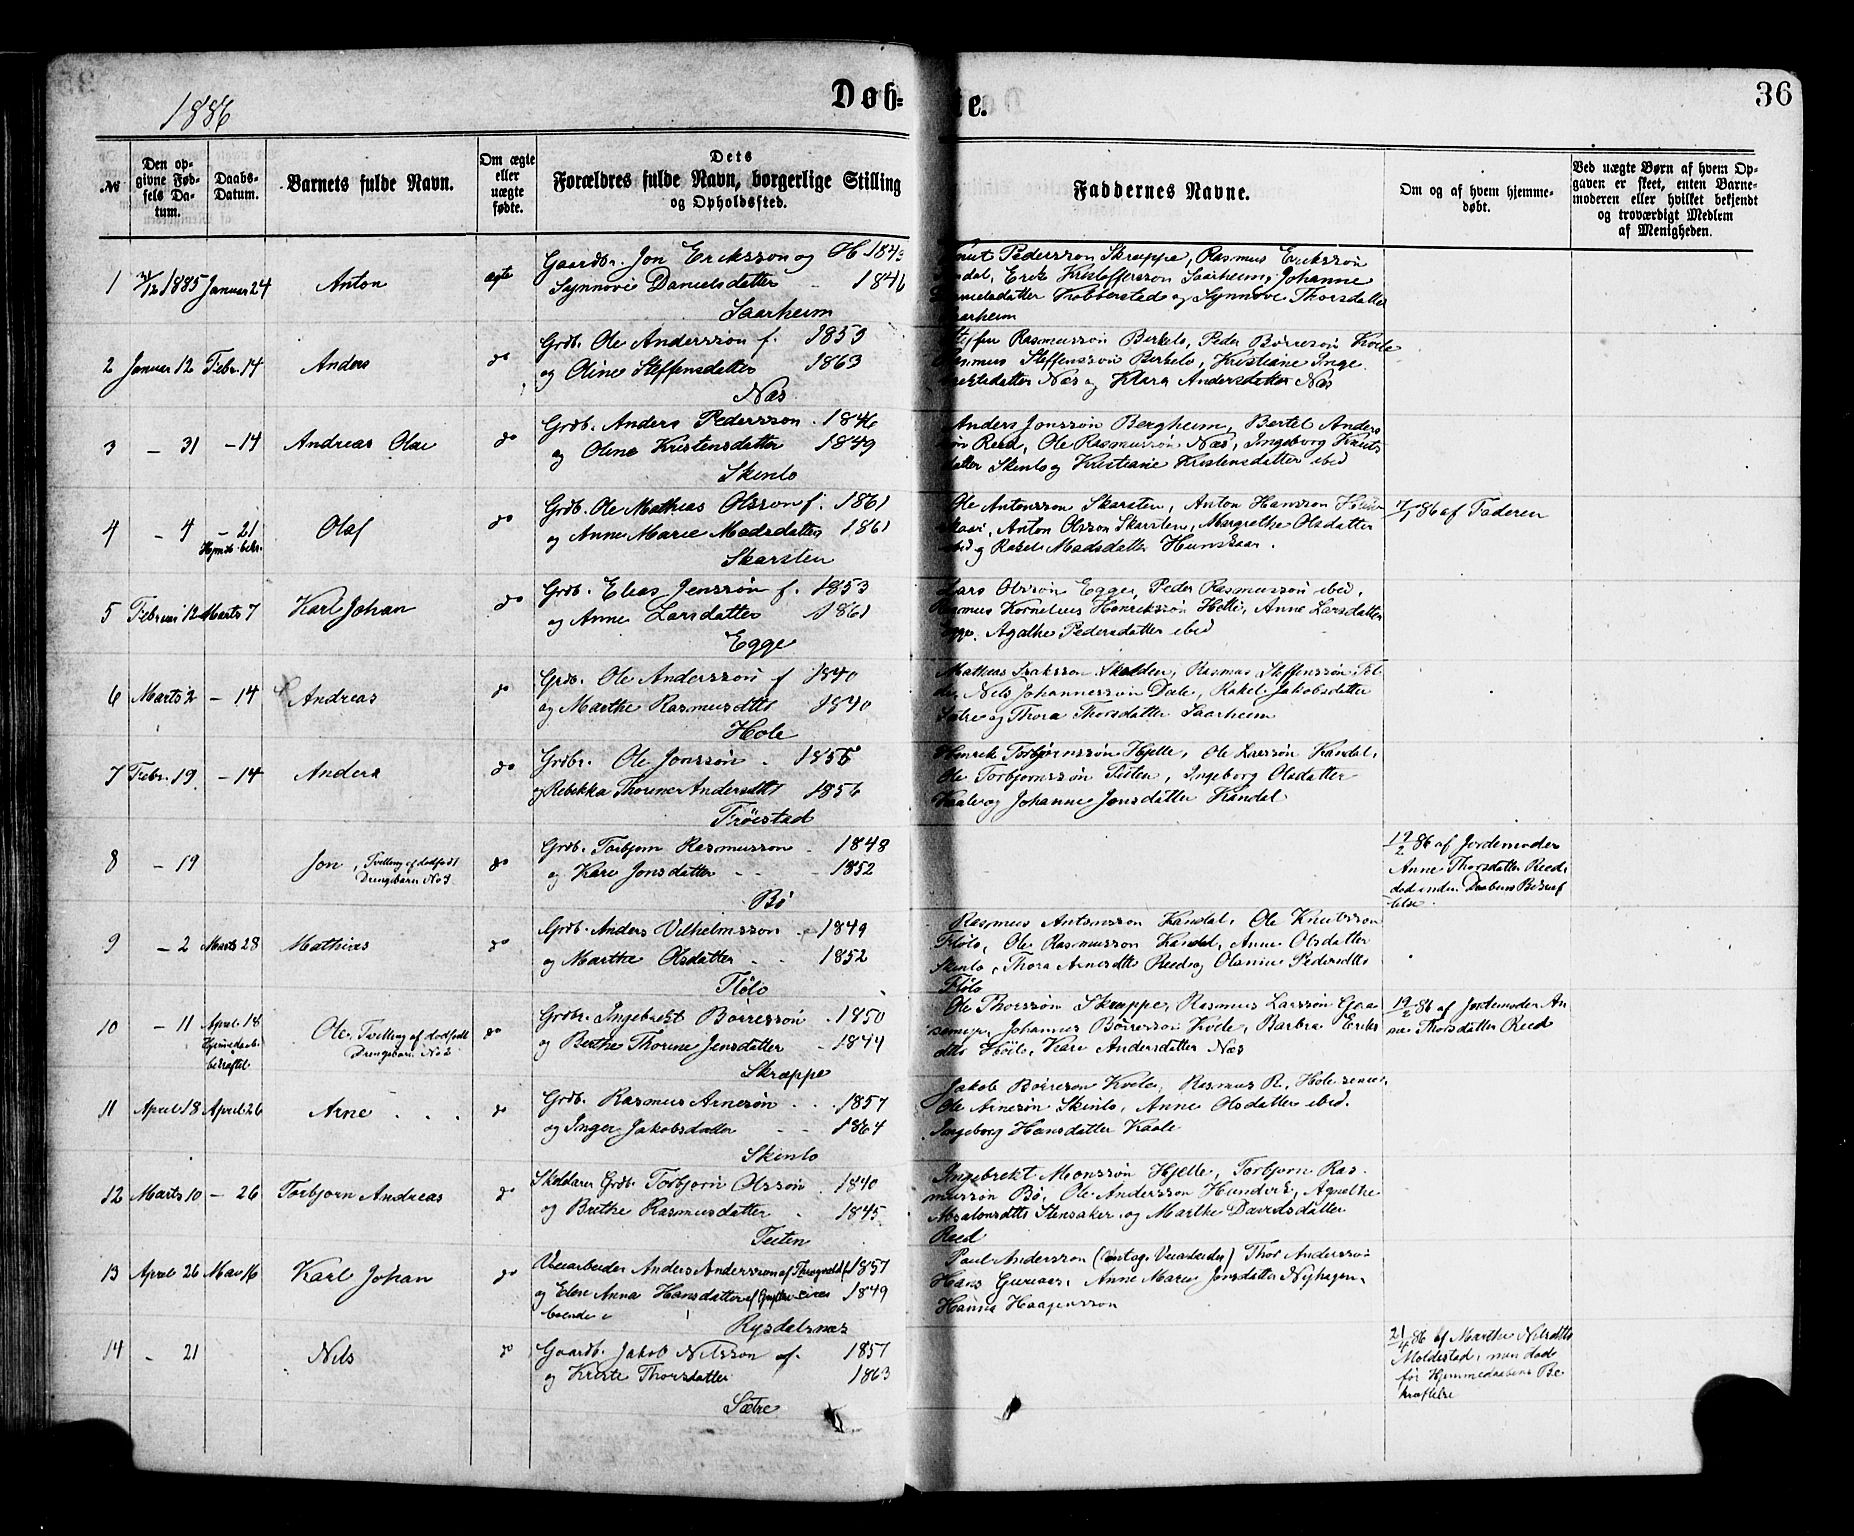 1886
Døb-
te.
36
№
Den opgivne Fødsels Datum.
Daabs-Datum.
Barnets fulde Navn.
Om ægte eller uægte fødte.
Dets Forældres fulde Navn, borgerlige Stilling og Opholdssted.
Faddernes Navne.
Om og af hvem hjemmedøbt.
Ved uægte Børn af hvem Opgaven er skeet, enten Barnemoderen eller hvilket bekjendt og troværdigt Medlem af Menigheden.
1 31/12 1885 Januar 24 Anton ægte
Gaardbr. Jon Eriksson og
Synnøve Danielsdatter 1846
Saarheim
Pedersson Skrappe, Rasmus Eriksson
Erik Kristoffersson Saarheim, Johanne
Kobberstad og Synnøve Thorsdatter
2 Januar 12 Febr. 14 Anders do
Grdb. Ole Andersson f. 1859
og Oline Steffensdatter 1863
Næs
Rasmusson Birkelo, Peder Børreson Kvile
Steffensson Birkelo, Kristiane Inge
Næs og Klara Andersdatter Næs
3 – 31 – 14 Andreas Olai do
Grdb. Anders Pedersson 1846
og Oline Kristensdatter 1849
Skinlo
Anders Jonsson Bergheim, Bertel Anders
søn Reed, Ole Rasmusson Næs, Ingeborg Knuts
datter Skinlo og Kristiane Kristensdatter ibid
4 – 4 – 21 Olaf do
Hjmdb. bekr.
Grdb. Ole Mathias Olsson f. 1861
og Anne Marie Madsdatter 1861
Skarsten
Ole Antonsson Skarsten, Anton Hansson
Anton Olsson Skarsten, Margrethe Olsdatter
ibid og Rakel Madsdatter Hunskaar.
86 af Faderen
5 Februar 12 Marts 7 Karl Johan do
Grdb. Elias Jensson f. 1853
og Anne Larsdatter 1861
Egge
Lars Olsson Egge, Peder Rasmusson ibid,
Rasmus Kornelius Henriksson Hette, Anne Larsdatter
Egge, Agathe Pedersdatter ibid
6 Marts 2 – 14 Andreas do
Grdb. Ole Andersson f 1840
og Marthe Rasmusdtt 1840
Hole
Mathias Isaksson Skolden, Rasmus Steffensson
Nils Johannesson Dale, Rakel Jakobsdatter
Sætre og Thora Thorsdatter Saarheim
7 Febr. 19 – 14 Anders do
Grdbr. Ole Jonsson
og Rebekka Thorine Andersdtt 1856
Frøistad
Henrik Torbjørnsson Hjelle, Ole Larsson Kandal,
Ole Torbjørnsson Teiten, Ingeborg Olsdatter
Kaale og Johanne Jonsdatter Kandal
8 – 19 Jon, Tvilling af dødfødt do
Drengebarn No 3
Grdb. Torbjørn Rasmusson 1848
og Kari Jonsdatter 1852
Bø
19/2 86 af Jordemoder
Anne Thorsdatter Reed
død inden Daabens Bekræf
telse.
9 – 2 Marts 28 Mathias do
Grdb. Anders Vilhelmsson 1849
og Marthe Olsdatter 1852
Fløtø
Rasmus Antonsson Kandal, Ole Knutsson
Fløtø, Ole Rasmusson Kandal, Anne Olsdatter
Skinlo, Thora Arnesdtt Reed og Olsnine Pedersdtt
Fløtø
10 – 11 April 18 Ole, Tvilling af dødfødt do
Hjemmedaab. Drengebarn No 2
bekræftet.
Grdbr. Ingebrigt Børresson 1850
og Berthe Thorine Jensdatter 1844
Skrappe
Ole Thorsson Skrappe, Rasmus Larsson
Johannes Børresson Kvile, Barbra Eriks
dtt Høilo, Kari Andersdatter Næs
19/2 86 af Jordemoder An
ne Thorsdatter Reed
11 April 18 April 26 Arne do
Grdb. Rasmus Arneson 1857
og Inger Jakobsdatter 1864
Skinlo
Jakob Børreson Kvile, Rasmus R. Hole
Ole Arneson Skinlo, Anne Olsdatter ibid.
Ingeborg Hansdatter Kaale
12 Marts 10 – 26 Torbjørn Andreas do
Skoldører Grdb. Torbjørn Olsson 1840
og Brethe Rasmusdatter 1845
Teiten
Ingebrekt Monsson Hjelle, Torbjørn Ras
musson Bø, Ole Andersson Hundeik, Agnethe
Absalonsdtt Stensaker og Marthe Davidsdatter
Reed
13 April 26 Mai 16 Karl Johan do
Veiarbeider Anders Andersson 1857
og Elen Anna Hansdatter 1849
boende i
Rysdalsnæs
Paul Andersson Thor Andersson
Hans Anne Marie Jonsdatter Nyhagen,
Hanna Haagensson
14 – 21 Nils do
Gaardb. Jakob Nilsson 1857
og Kriste Thorsdatter 1863
Sætre
21/4 86 af Marthe Nilsdtt
Moldestad, men døde
før Hjemmedaabens Be
kræftelse